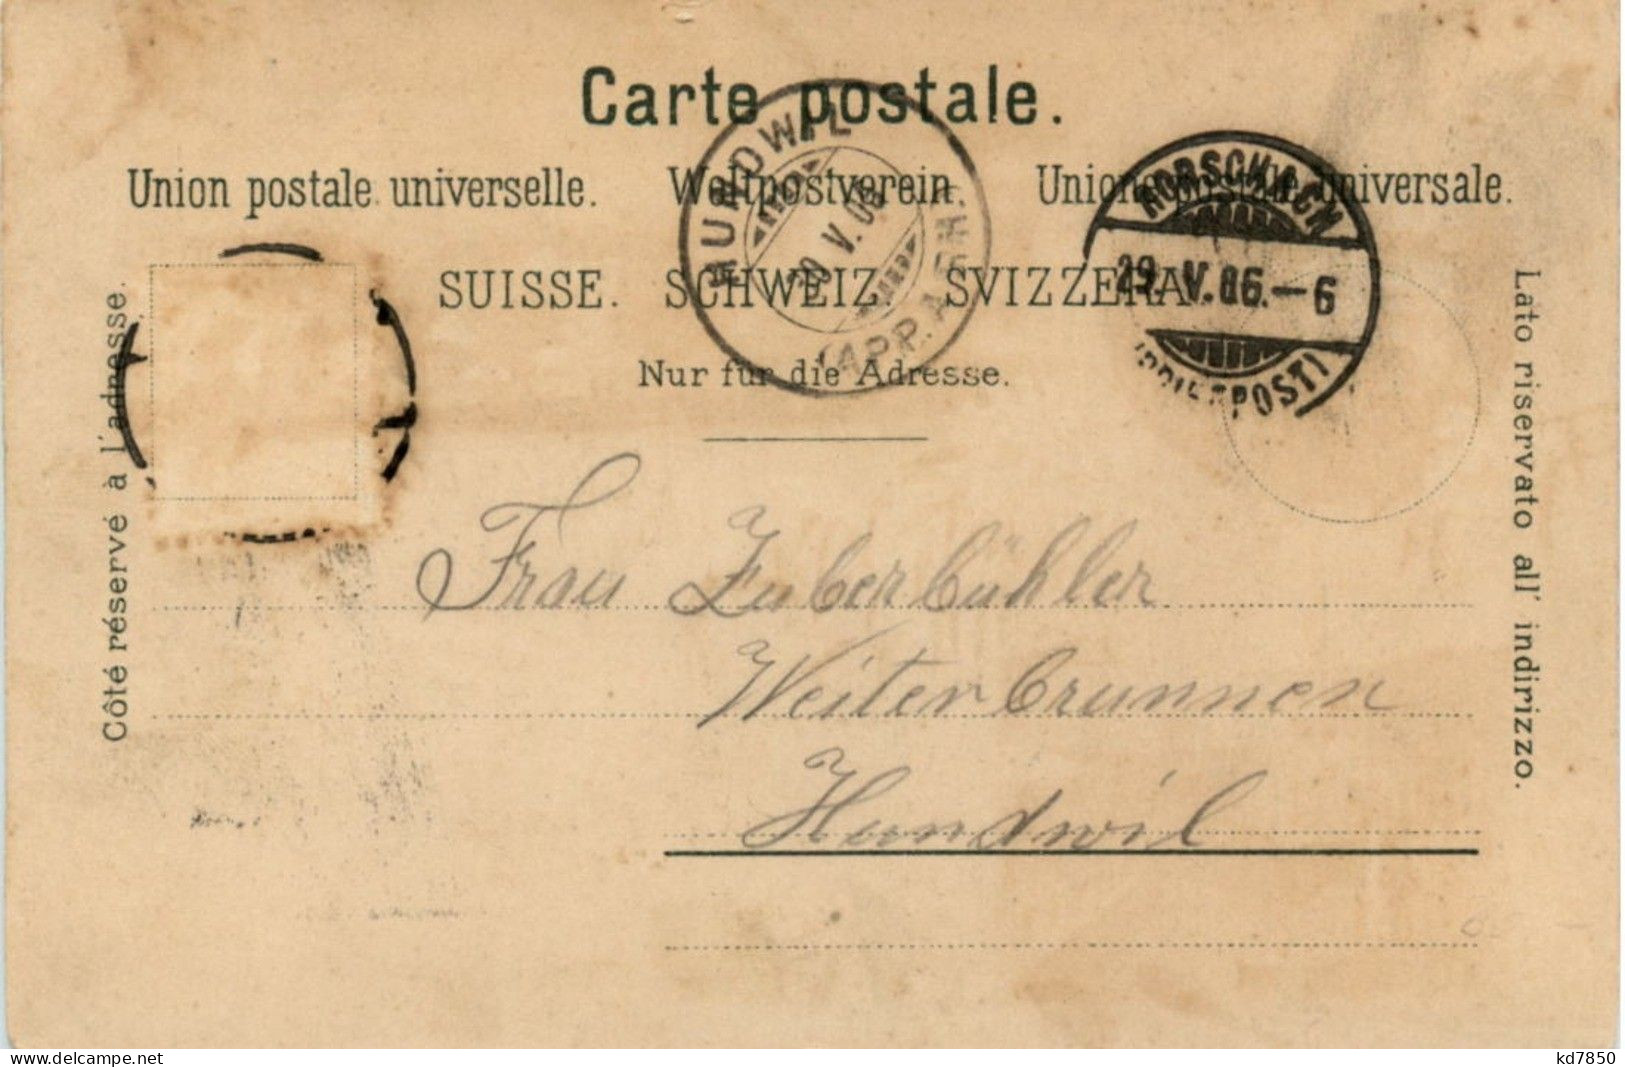 Carte postale.
Union postale universelle. Weltpostverein. Unione postale universale.
SUISSE. SCHWEIZ. SVIZZERA.
Nur für die Adresse.
Côté réservé à l'adresse.
Lato riservato all' indirizzo.
HUNDWIL
V. 06
(APP. A. RH.)
RORSCHACH
29. V. 06.–6
(BRIEFPOST)
Frau Zuberbühler
Weiterbrunnen
Hundwil
www.delcampe.net
kd7850